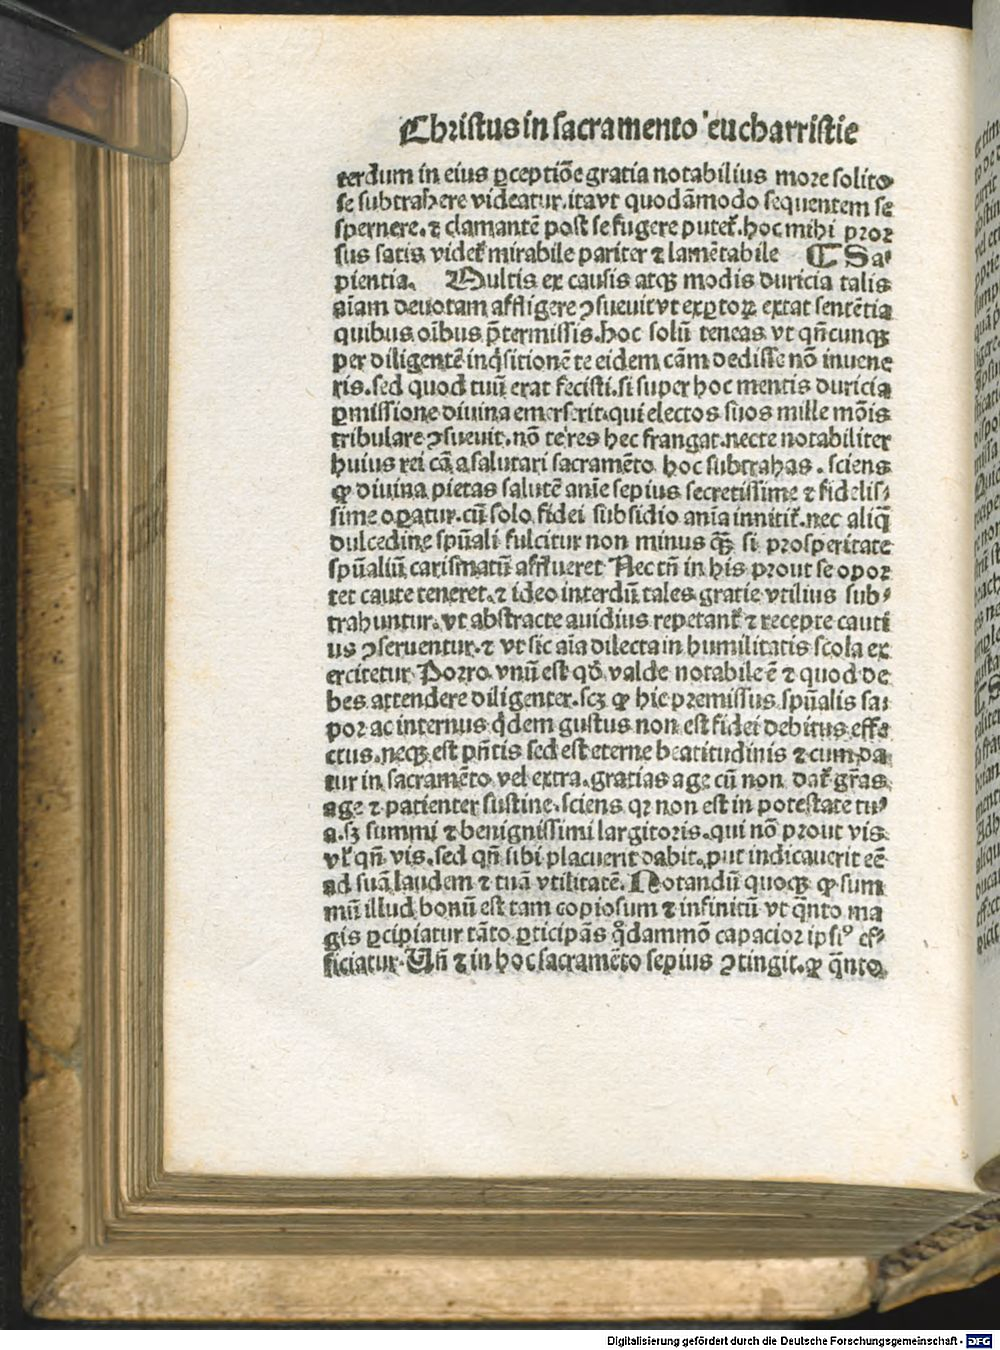 Christus in sacramento eucharristie
terdum in eius ꝑceptiōe gratia notabilius more solito
se subtrahere videatur. itavt quodāmodo sequentem se
spernere. ⁊ clamantē post se fugere putet᷑. hoc mihi pror
sus satis videt᷑ mirabile pariter ⁊ lamētabile ¶ Sa⸗
pientia. Multis ex causis atqꝫ modis duricia talis
aīam deuotam affligere ꝯsueuit vt exꝑtoꝝ extat sentētia
quibus oībus p̄termissis. hoc solū teneas vt qn̄cunqꝫ
per diligentē inq̇sitionē te eidem cām dedisse nō inuene
ris. sed quod tuū erat fecisti. si super hoc mentis duricia
ꝑmissione diuina emerserit. qui electos suos mille mōis
tribulare ꝯsueuit. nō te res hec frangat. necte notabiliter
huius rei cā a salutari sacramēto hoc subtrahas. sciens
ꝙ diuina pietas salutē anīe sepius secretissime ⁊ fidelis⸗
sime oꝑatur. cū solo fidei subsidio anīa innitit᷑. nec aliq̄
dulcedine spūali fulcitur non minus qꝫ̄ si prosperitate
spūaliū carismatū afflueret Nec tn̄ in his prout se opor
tet caute teneret. ⁊ ideo interdū tales gratie vtilius sub⸗
trahuntur. vt abstracte auidius repetant᷑ ⁊ recepte cauti
us ꝯseruentur. ⁊ vt sic aīa dilecta in humilitatis scola ex
ercitetur Porro vnū est qd̄ valde notabile ē ⁊ quod de
bes attendere diligenter. scꝫ ꝙ hic premissus spūalis sa⸗
por ac internus q̇dem gustus non est fidei debitus effe
ctus. neqꝫ est pn̄tis sed est eterne beatitudinis ⁊ cum da
tur in sacramēto vel extra. gratias age cū non dat᷑ gr̄as
age ⁊ patienter sustine. sciens qꝛ non est in potestate tu⸗
a. sꝫ summi ⁊ benignissimi largitoris. qui nō prout vis
vl᷑ qn̄ vis. sed qn̄ sibi placuerit dabit. ꝓut indicauerit eē
ad suā laudem ⁊ tuā vtilitatē. Notandū quoqꝫ ꝙ sum
mū illud bonū est tam copiosum ⁊ infinitū vt q̄nto ma
gis ꝑcipiatur tāto ꝑticipās qͦdammō capacior ipsiꝰ ef⸗
ficiatur. Vn̄ ⁊ in hoc sacramēto sepius ꝯtingit. ꝙ q̄nto
Digitalisierung gefördert durch die Deutsche Forschungsgemeinschaft - DFG